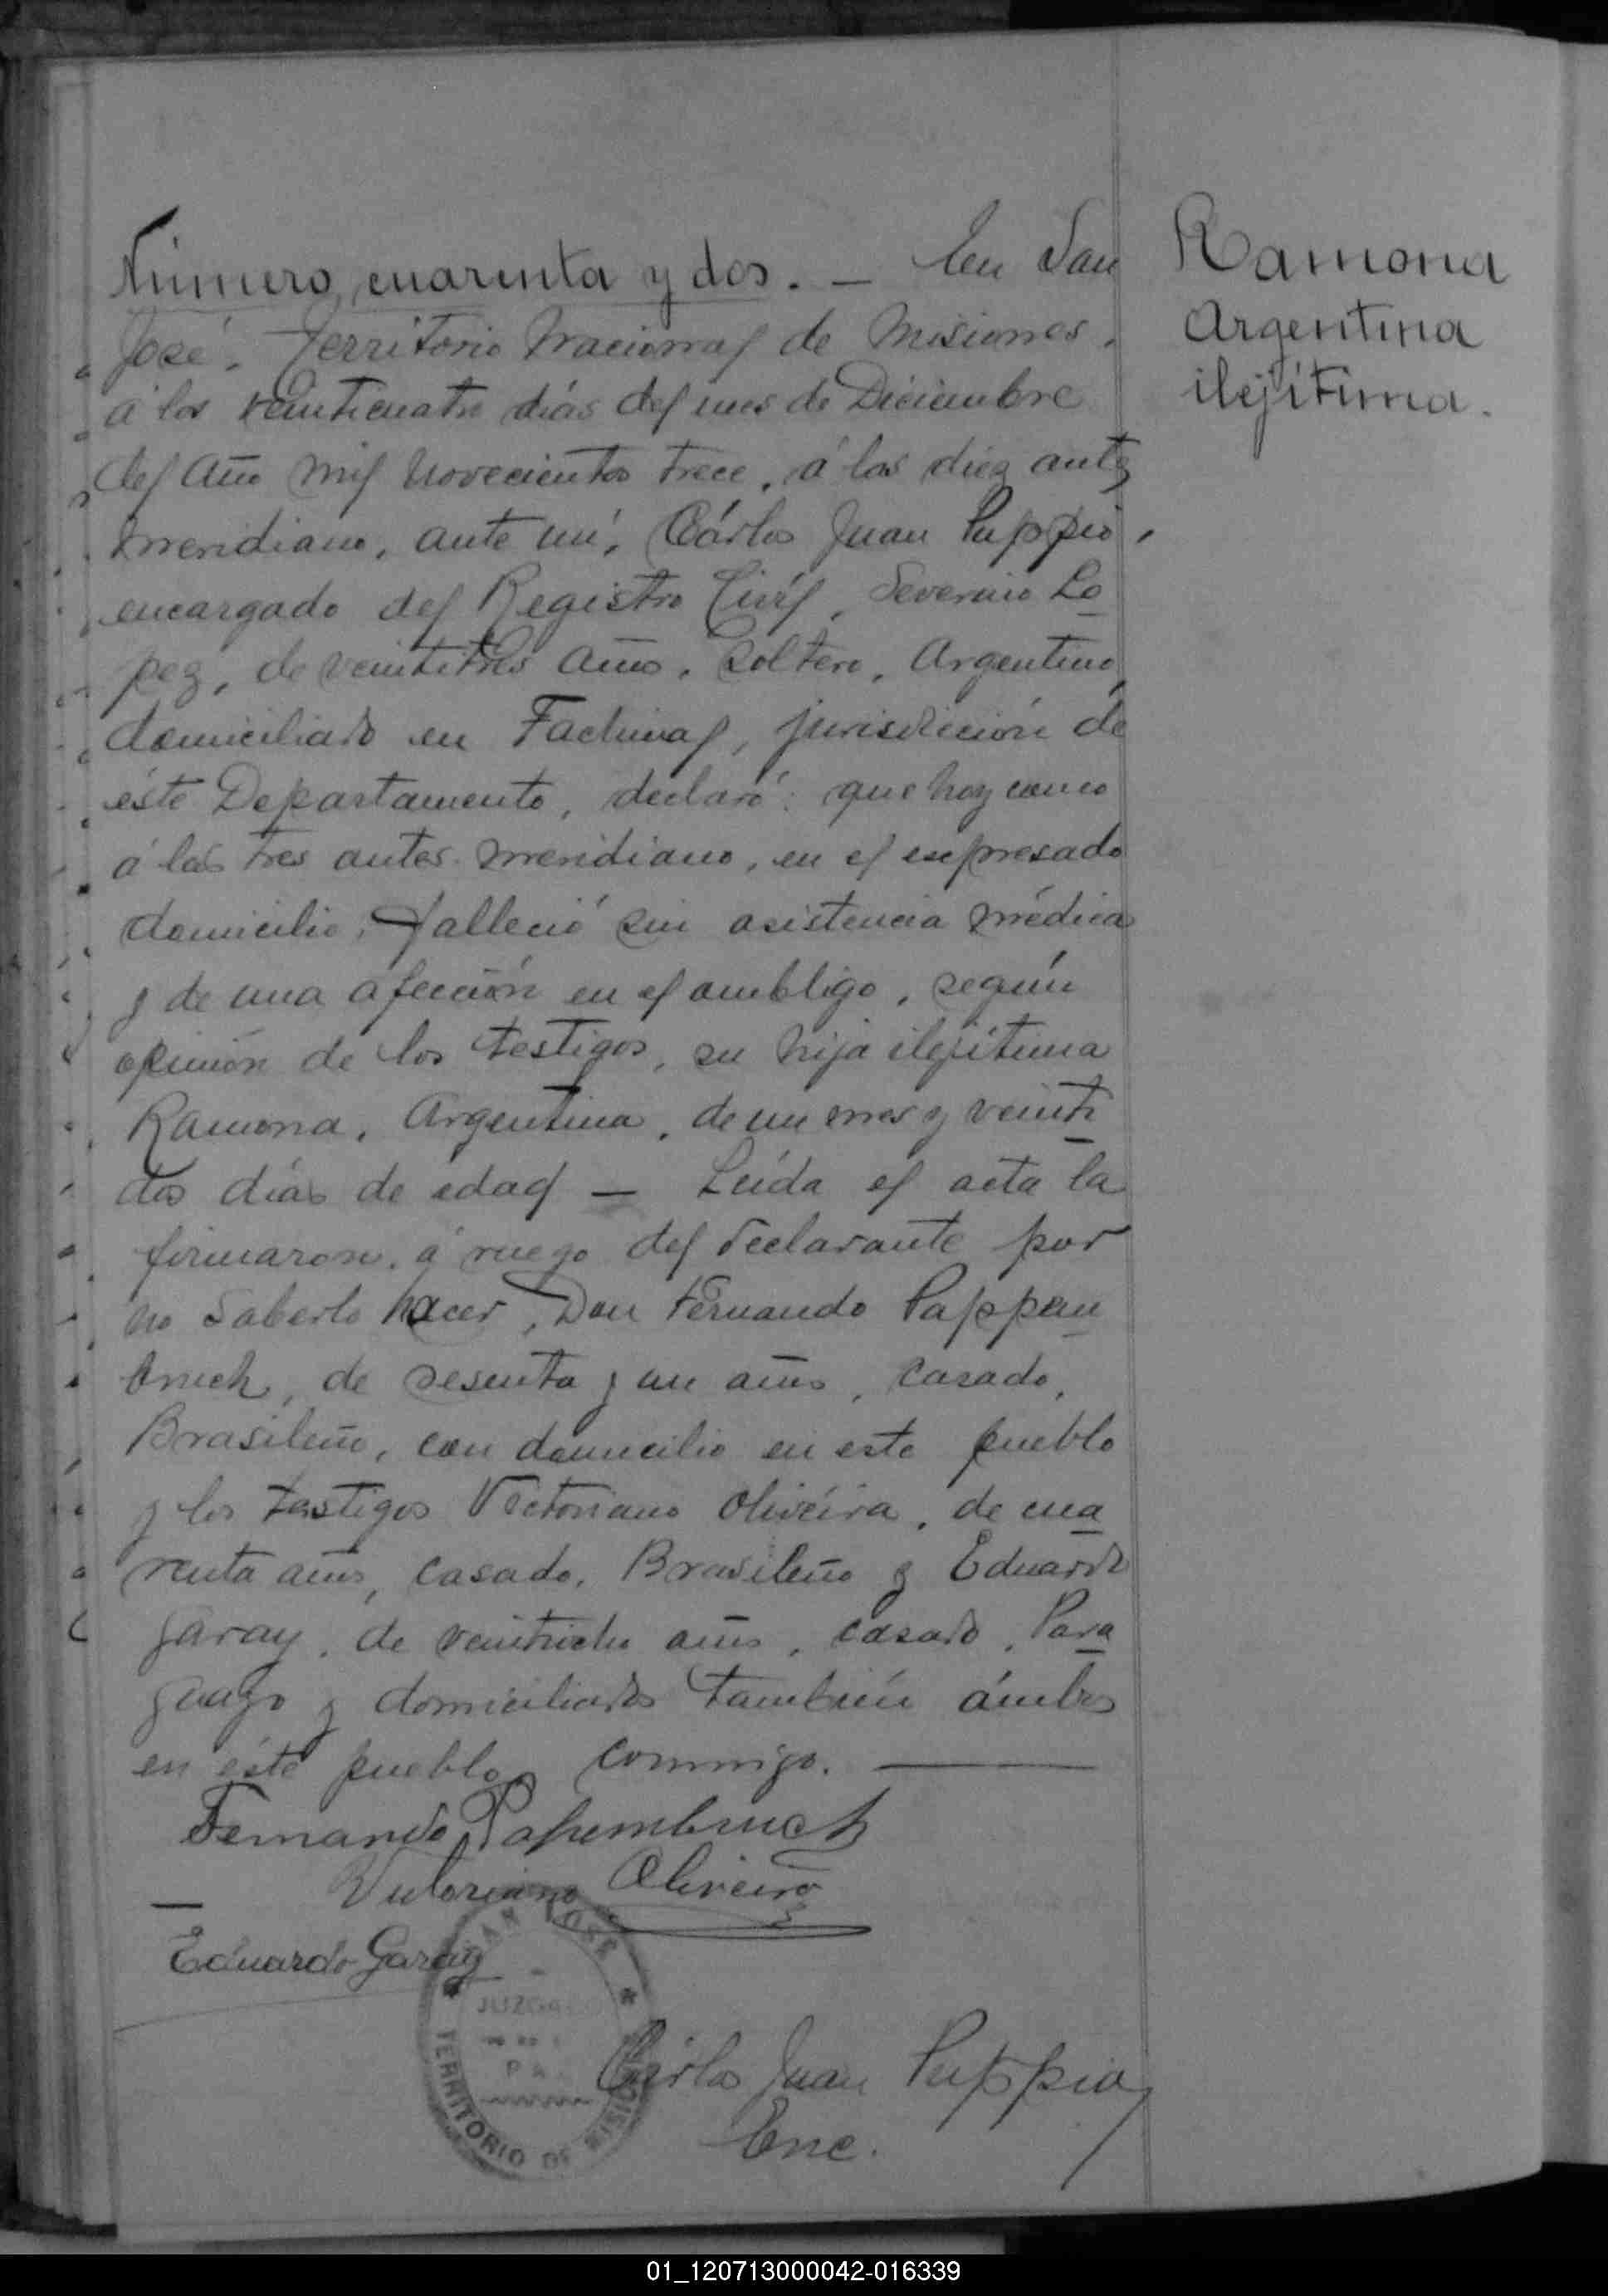 Número cuarenta y dos. — En San
José, Territorio Nacional de Misiones,
á los veinticuatro días del mes de Diciembre
del año mil novecientos trece, á las diez ante
meridiano, ante mí, Cárlos Juan Puppio,
encargado del Registro Civil, Severino Lo
pez, de veintitres años, soltero, Argentino,
domiciliado en Fachinal, jurisdicción de
éste Departamento, declaró: que hoy
á las tres antes meridiano, en el expresado
domicilio, falleció sin asistencia médica
y de una afección en el ombligo, según
opinión de los testigos, su hija ilejítima
Ramona, Argentina, de un mes y veinti
dos días de edad — Leída el acta la
firmaron, á ruego del declarante por
no saberlo hacer, Don Fernando Pappen
bruch, de sesenta y un años, casado,
Brasileño, con domicilio en este pueblo
y los testigos Victoriano Oliveira, de cua
renta años, casado, Brasileño y Eduardo
Garay, de veintiocho años, casado, Para
guayo y domiciliados también ámbos
en éste pueblo conmigo. —
Fernando Papembruch
Victoriano Oliveira
Eduardo Garay
Cárlos Juan Puppio
Enc.
Ramona
Argentina
ilejítima.
SAN JOSE
JUZGADO
DE
PAZ
TERRITORIO DE MISIONES
01_120713000042-016339